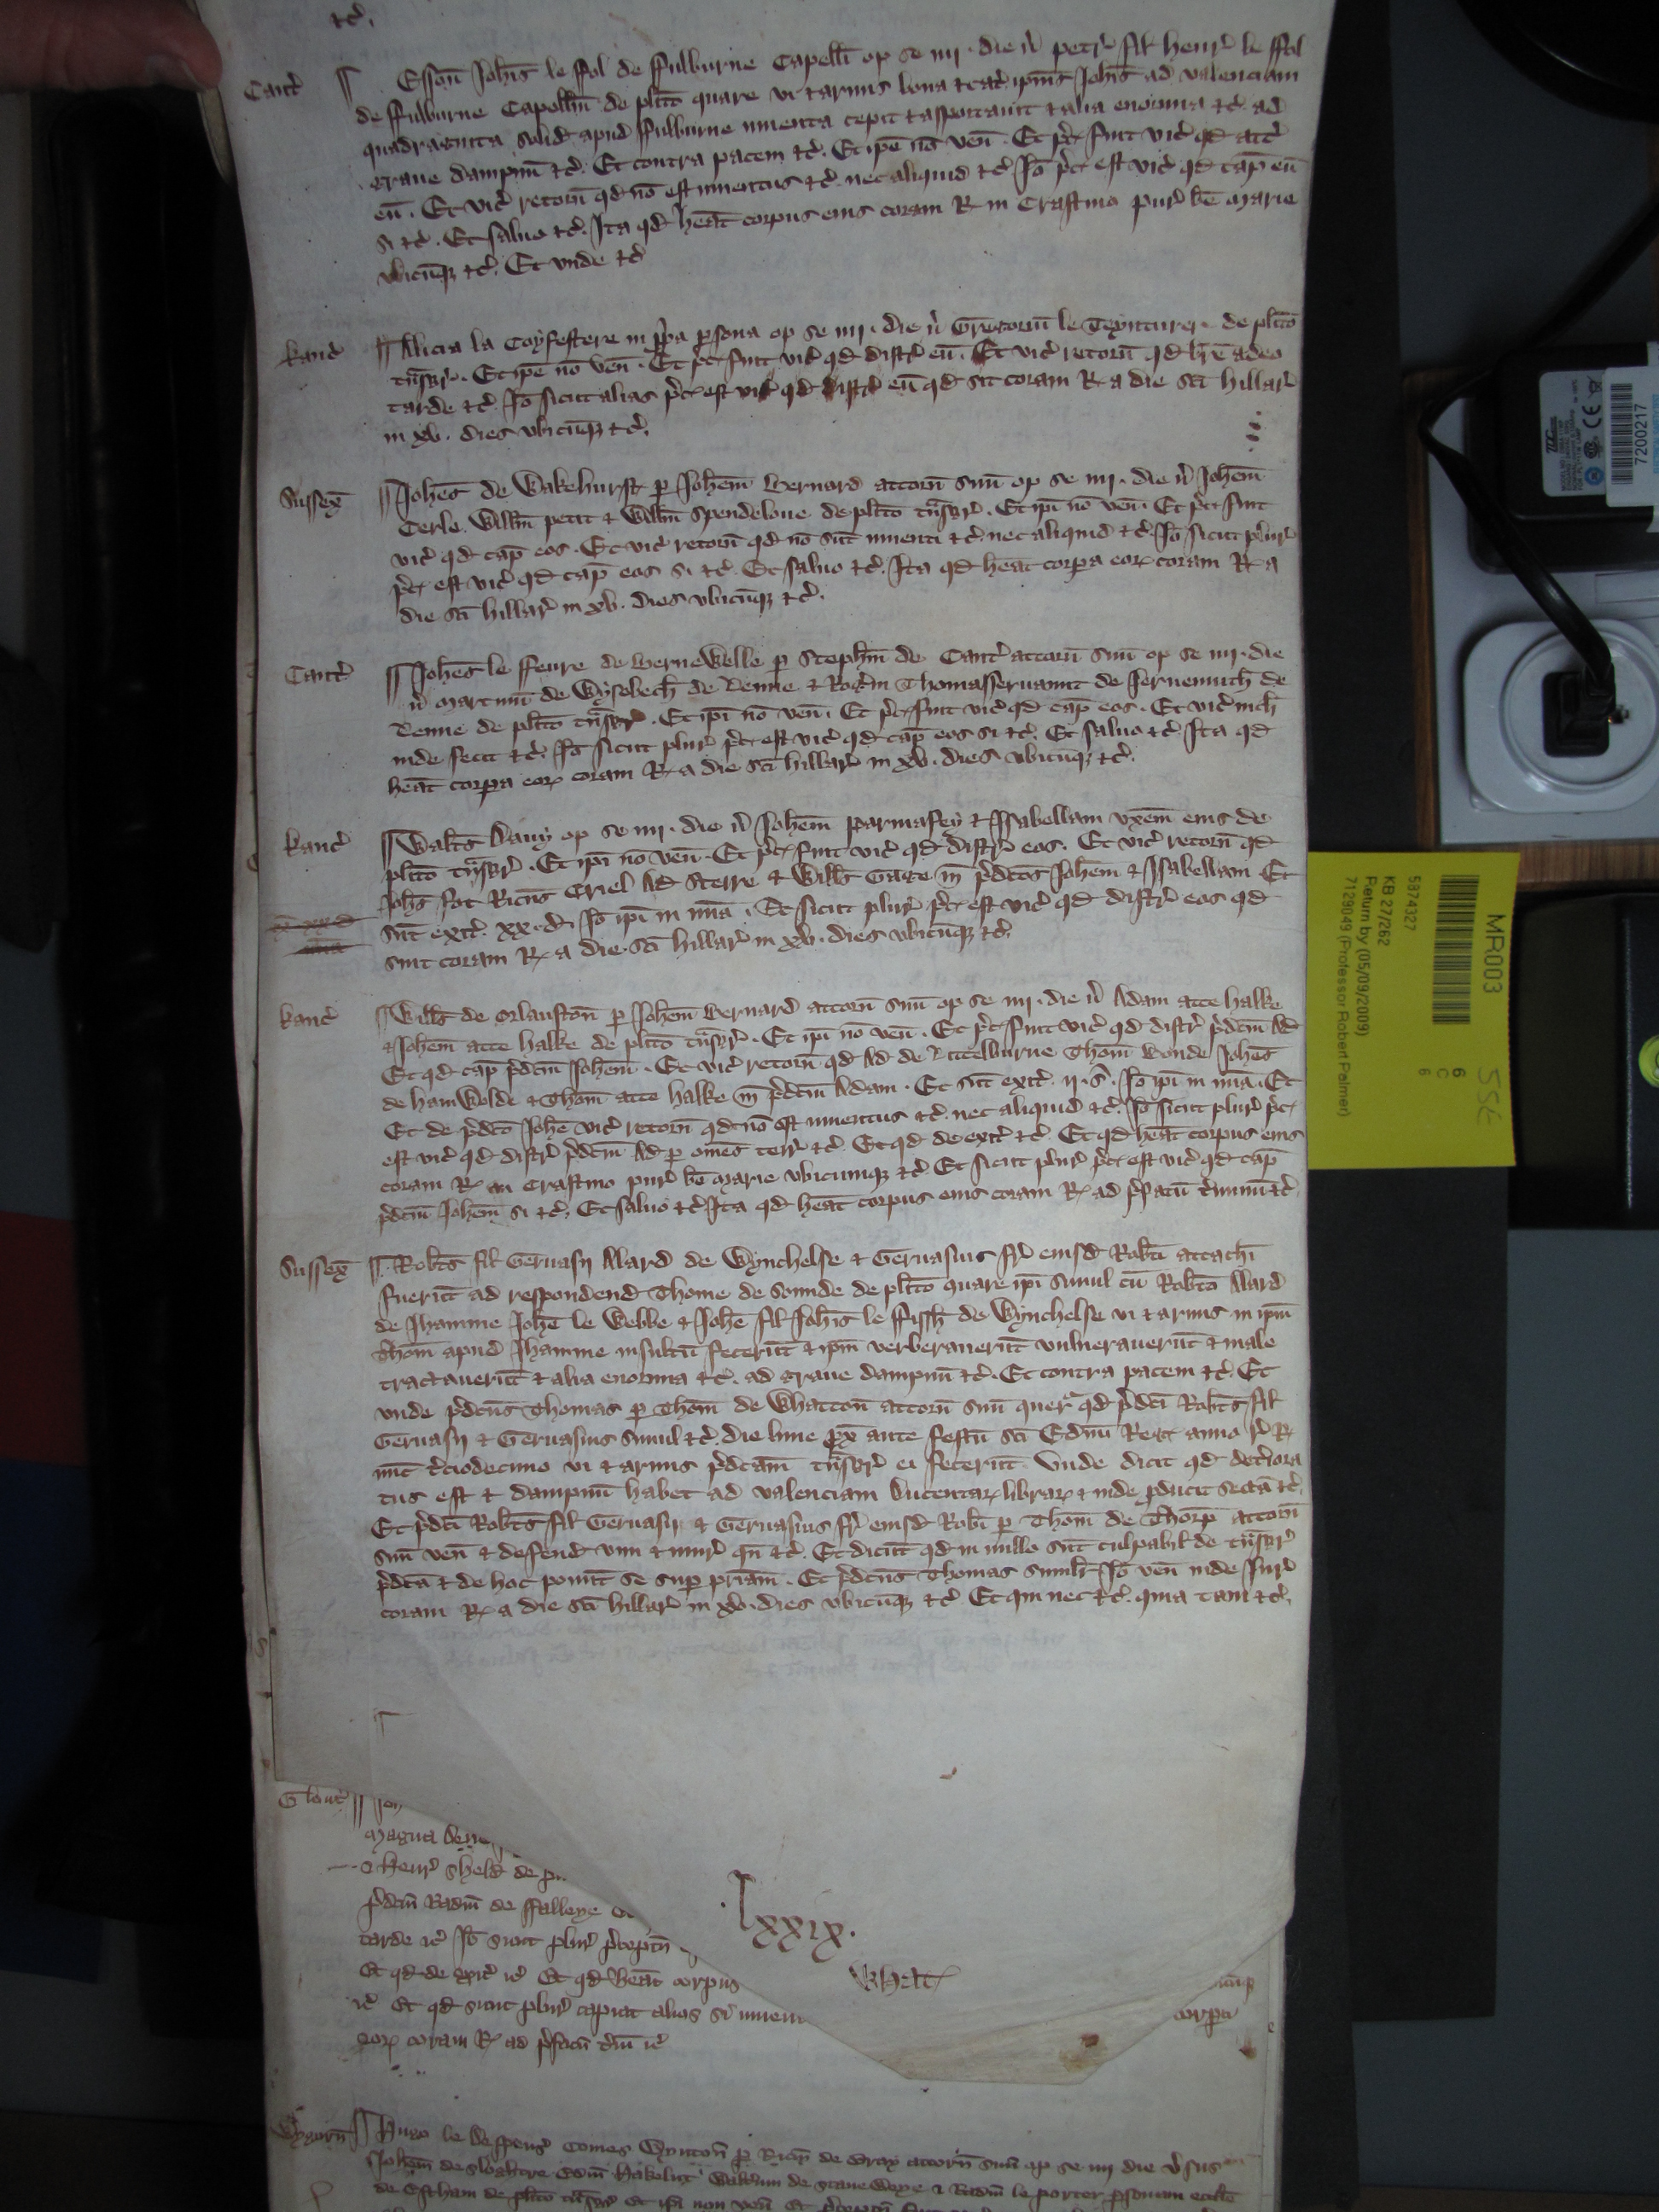 &c̃.
Cant̃ Esson̄ Joh̄is le ffol de ffulburne Capell̄i op̄ se iiij. die v̄ petr̃ fil̄ Henr̃ le ffol
de ffulburne Capell̄m de pl̄ito quare vi & armis bona & cat̃ ip̄ius Joh̄is ad valenciam
quadraginta solid̃ apud ffulburne inuenta cepit & asportauit & alia enormia &c̃. ad
graue dampnū &c̃. Et contra pacem &c̃. Et ip̄e nō ven̄. Et p̃c̃ fuit vic̃ qd̄ att̃
eū. Et vic̃ retorn̄ qd̄ nō est inuentus &c̃. nec aliquid &c̃. Iō p̃c̃ est vic̃ qd̄ cap̄ eū
si &c̃. Et saluo &c̃. Ita qd̄ heāt corpus eius coram R̃ in Crastino pur̃ b̄e marie
vbicūq₃ &c̃. Et vnde &c̃
Kanc̃ Alicia la Coyfestere in p̃p̄a p̄sona op̄ se iiij. die v̄ Gregoriū le Teynturer. de pl̄ito
tn̄sgr̃. Et ip̄e nō ven̄. Et p̃c̃ fuit vic̃ qd̄ distr̃ eū. Et vic̃ retorn̄ qd̄ br̄e adeo
tarde &c̃. Iō sicut alias p̃c̃ est vic̃ qd̄ distr̃ eū qd̄ sit coram R̃ a die sc̄i Hillar̃
in xv. dies vbicūq₃ &c̃.
Sussex̄ Joh̄es de Wakehurst p̄ Joh̄em Bernard attorn̄ suū op̄ se iiij. die v̄ Joh̄em
Cerle Will̄m petit & Will̄m Spendeloue de pl̄ito tn̄sgr̃. Et ip̄i nō ven̄. Et p̃c̃ fuit
vic̃ qd̄ cap̄ eos. Et vic̃ retorn̄ qd̄ nō sūt inuenti &c̃. nec aliquid &c̃. Iō sicut plur̃
p̃c̃ est vic̃ qd̄ cap̄ eos si &c̃. Et saluo &c̃. Ita qd̄ heāt corpa eoꝝ coram R̃ a
die sc̄i Hillar̃ in xv. dies vbicūq₃ &c̃.
Cant̃ Joh̄es le ffeure de Bernewelle p̄ Steph̄m de Cant̃ attorn̄ suū op̄ se iiij. die
v̄ Martinū de Wysebech̄ de Lenne & Rog̃m Thomasseruaunt de Jernemuth̄ de
Lenne de pl̄ito tn̄sgr̃. Et ip̄i nō ven̄. Et p̃c̃ fuit vic̃ qd̄ cap̄ eos. Et vic̃ nich̄
inde fecit &c̃. Iō sicut plur̃ p̃c̃ est vic̃ qd̄ cap̄ eos si &c̃. Et saluo &c̃. Ita qd̄
heāt corpa eoꝝ coram R̃ a die sc̄i Hillar̃ in xv. dies vbicūq₃ &c̃.
Kanc̃ Walt̄s Dauy op̄ se iiij. die v̄ Joh̄em Parmafey & Isabellam vx̄em eius de
pl̄ito tn̄sgr̃. Et ip̄i nō ven̄. Et p̃c̃ fuit vic̃ qd̄ distr̃ eos. Et vic̃ retorn̄ qd̄
Joh̄s fot Ric̄us Criel Ad̄ Sterre & Will̄s Gate m̄ p̃dc̄os Joh̄em & Isabellam. Et
sūt exit̃. xx. d̃. Iō ip̄i in mīa. Et sicut plur̃ p̃c̃ est vic̃ qd̄ distr̃ eos qd̄
sint coram R̃ a die sc̄i Hillar̃ in xv. dies vbicūq₃ &c̃.
Kanc̃ Will̄s de Orlauston̄ p̄ Joh̄em Bernard attorn̄ suū op̄ se iiij. die v̄ Adam atte Halke
& Joh̄em atte Halke de pl̄ito tn̄sgr̃. Et ip̄i nō ven̄. Et p̃c̃ fuit vic̃ qd̄ distr̃ p̃dc̄m Ad̄
Et qd̄ cap̄ p̃dc̄m Joh̄em. Et vic̃ retorn̄ qd̄ Ad̄ de Litelburne Thom̄ Bonde Joh̄es
de Hamwolde & Thom̄ atte Halke m̄ p̃dc̄m Adam. Et sūt exit̃. ij. s̃. Iō ip̄i in mīa. Et
Et de p̃dc̄o Joh̄e vic̃ retorn̄ qd̄ nō est inuentus &c̃. nec aliquid &c̃. Iō sicut plur̃ p̃c̃
est vic̃ qd̄ distr̃ p̃dc̄m Ad̄ p̄ om̄es terr̃ &c̃. Et qd̄ de exit̃ &c̃. Et qd̄ heāt corpus eius
coram R̃ in Crastino pur̃ b̄e Marie vbicumq₃ &c̃ Et sicut plur̃ p̃c̃ est vic̃ qd̄ cap̄
p̃dc̄m Joh̄em si &c̃. Et saluo &c̃ Ita qd̄ heāt corpus eius coram R̃ ad p̃fatū t̃minū &c̃.
Sussex̄ Rob̄ts fil̄ Geruasij Alard de Wynchelse & Geruasius fr̃ eiusd̄ Rob̄ti attach̄
fuerūt ad respondend̄ Thome de Sounde de pl̄ito quare ip̄i simul cū Rob̄to Alard
de Ihamme Joh̄e le Webbe & Joh̄e fil̄ Joh̄is le ffissh̄ de Wynchelse vi & armis in ip̄m
Thom̄ apud Ihamme insultū fecerūt & ip̄m verberauerūt vulnerauerūt & male
tractauerūt & alia enormia &c̃. ad graue dampnū &c̃. Et contra pacem &c̃. Et
vnde p̃dc̄us Thomas p̄ Thom̄ de Whatton̄ attorn̄ suū quer̃ qd̄ p̃dc̄i Rob̄ts fil̄
Geruasij & Geruasius simul &c̃. die lune p̄x̄ ante festū sc̄i Edm̄i Reg̃ anno r̃ R̃
nūc t̃ciodecimo vi & armis p̃dc̄am tn̄sgr̃ ei fecerūt. Vnde dicit qd̄ det̃iora
tus est & dampnū habet ad valenciam Ducentaꝝ libraꝝ & inde p̄ducit sectā &c̃.
Et p̃dc̄i Rob̄ts fil̄ Geruasij & Geruasius fr̃ eiusd̄ Rob̄i p̄ Thom̄ de Thorp̄ attorn̄
suū ven̄ & defend̄ vim & iniur̃ qn̄ &c̃. Et dicūt qd̄ in nullo sūt culpabil̄ de tn̄sgr̃
p̃dc̄a & de hoc ponūt se sup̄ pr̄iam. Et p̃dc̄us Thomas simil̄r Iō ven̄ inde Jur̃
coram R̃ a die sc̄i Hillar̃ in xv. dies vbicūq₃ &c̃ Et qui nec &c̃. quia tam &c̃.
Glouc̃
magna
Henr̃ Sheld̄ de
p̃dc̄m Radm̄ de ffalleye
tarde &c̃ Iō sicut plur̃ p̃ceptū
Et qd̄ de exit̃ &c̃ Et qd̄ heāt corpus
&c̃ Et qd̄ sicut plur̃ capiat alios si corpa
eoꝝ coram R̃ ad p̃fatū t̃m̄ &c̃
.lxxix.
Whatt̃
Wygorn̄ Hugo le Despens̃ Comes Wynton̄ p̄ Ric̄m de Gray attorn̄ suū op̄ se iiij die ṽsus
Joh̄em de Sloghtre Edm̄ Hakelut de & Radm̄ le porter p̄sonam eccl̄ie
de Estham de pl̄ito tn̄sgr̃ Et ip̄i non ven̄ Et p̃ceptū
MR003
5874327
KB 27/262
Return by (05/09/2009)
7129049 (Professor Robert Palmer)
6
C
6
7200217